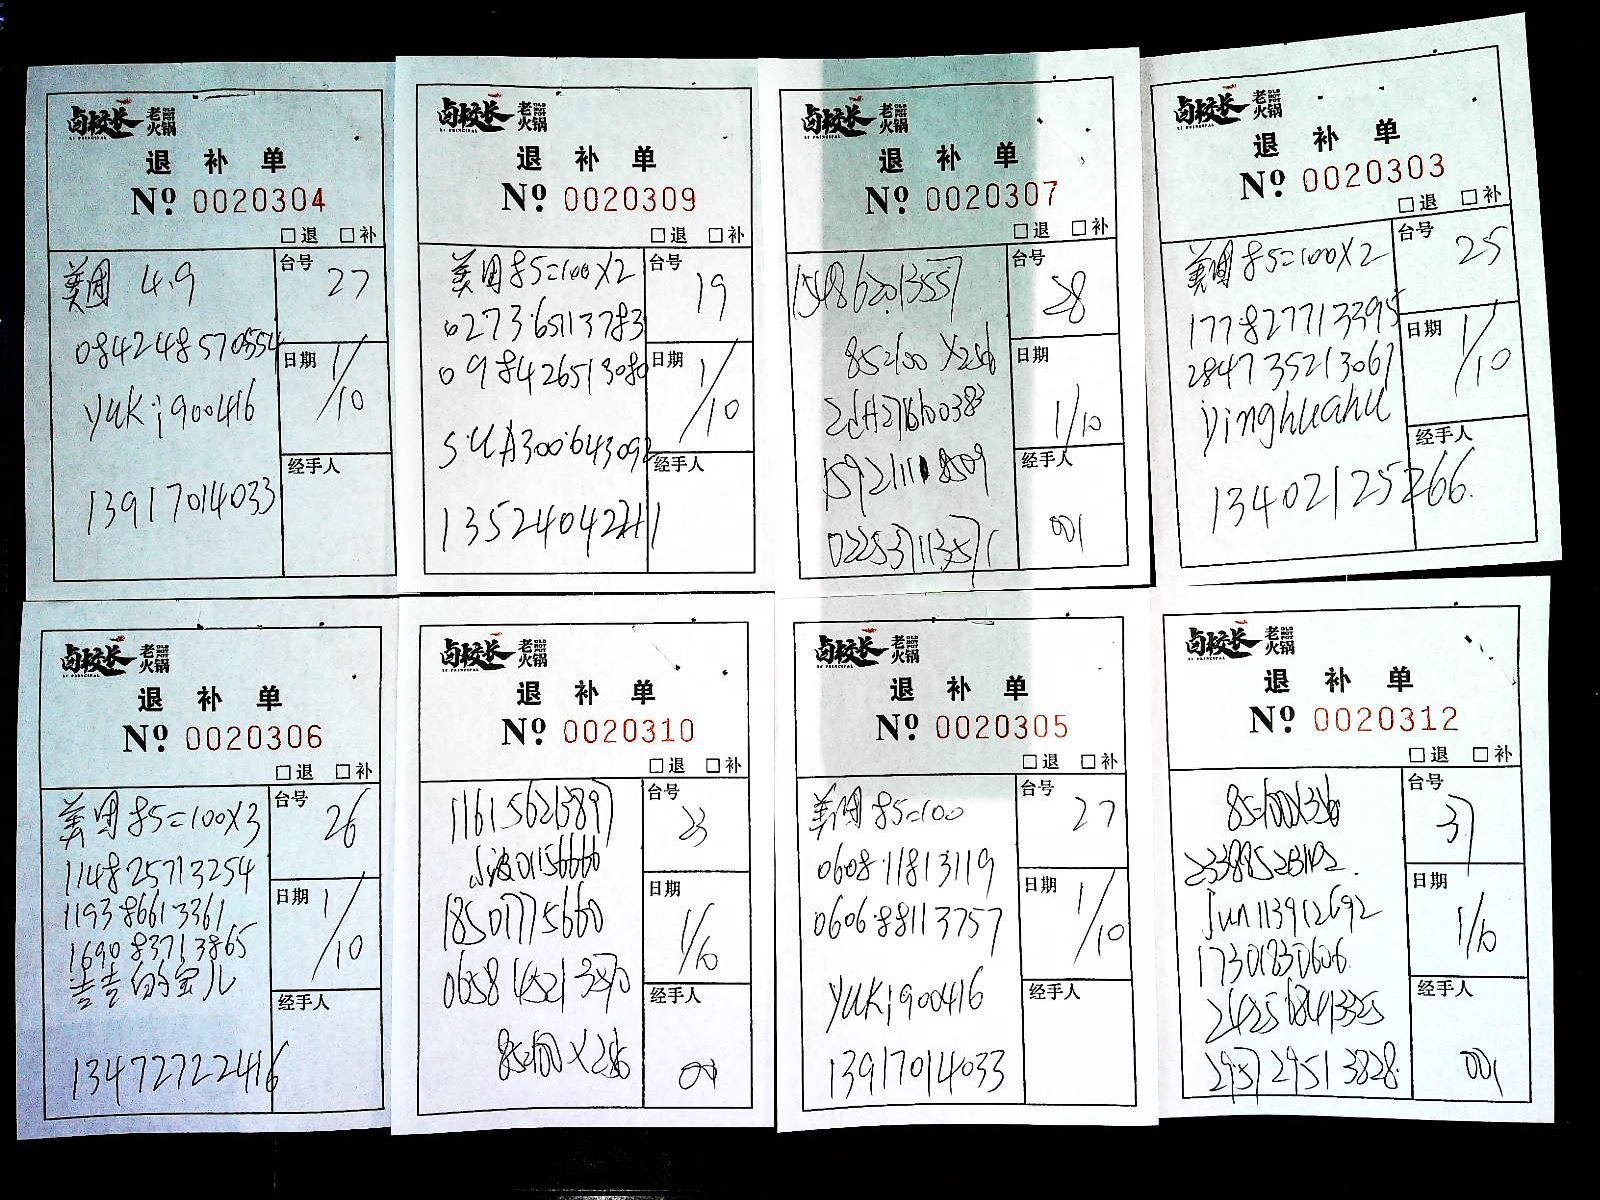 卤校长 老火锅
LU PRINCIPAL
退补单
№ 0020304
□退 □补
美团 4.9
0842485710554
yuki900416
13917014033
台号 27
日期 1/10
经手人
卤校长 老火锅
退补单
№ 0020309
□退 □补
美团85=100X2
027365113783
098426513080
13524042211
台号 19
日期 1/10
经手人
卤校长 老火锅
退补单
№ 0020307
□退 □补
154862013557
15921118509
022537113571
台号 28
日期 1/10
经手人 001
卤校长 老火锅
退补单
№ 0020303
□退 □补
美团85=100X2
177827713395
284735213067
yinghuahu
13402125266
台号 25
日期 1/10
经手人
卤校长 老火锅
退补单
№ 0020306
□退 □补
美团85=100X3
114825713254
119386613361
169083713865
吉吉的宝儿
13472722416
台号 26
日期 1/10
经手人
卤校长 老火锅
退补单
№ 0020310
□退 □补
116156213897
18501775660
0658145213870
台号 23
日期 1/10
经手人 001
卤校长 老火锅
退补单
№ 0020305
□退 □补
美团85=100
060811813119
060688113757
yuki900416
13917014033
台号 27
日期 1/10
经手人
卤校长 老火锅
退补单
№ 0020312
□退 □补
jun113912692
17301830606
295729513828
台号 37
日期 1/10
经手人 001